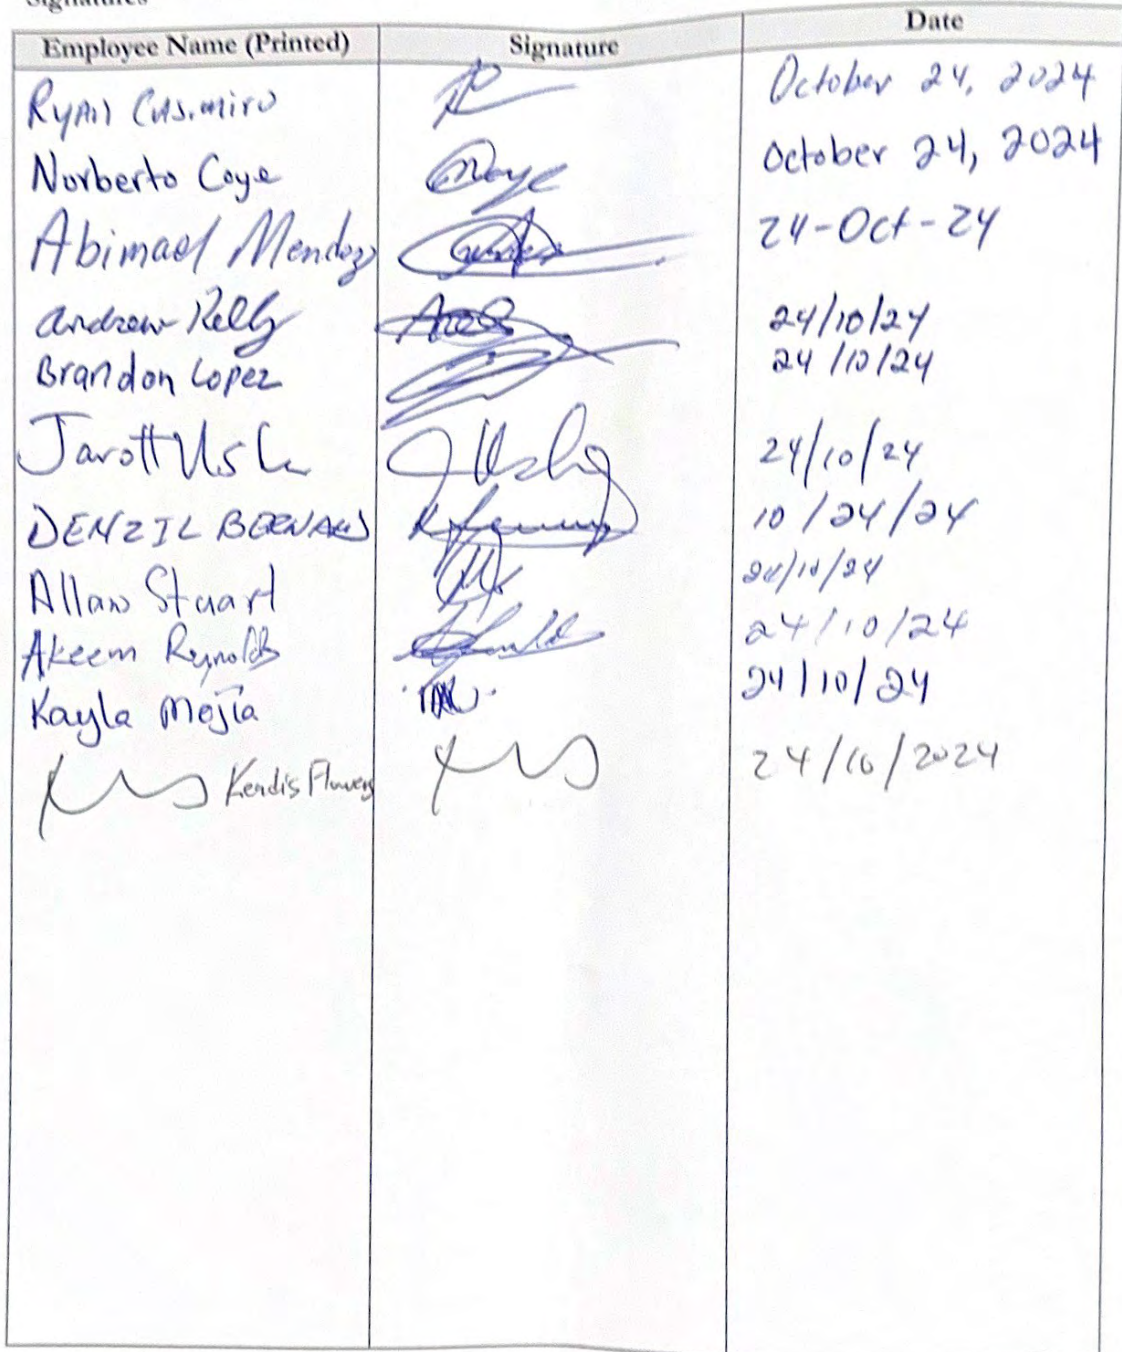 Signatures
Employee Name (Printed) Signature Date
Ryan Casimiro October 24, 2024
Norberto Coye October 24, 2024
Abimael Mendoz 24-Oct-24
Andrew Kelly 24/10/24
Brandon Lopez 24/10/24
Jarott 24/10/24
DENZIL BERNARD 10/24/24
Allan Stuart 24/10/24
Akeem Reynolds 24/10/24
Kayla Mejia 24/10/24
Kendis Flowers 24/10/2024